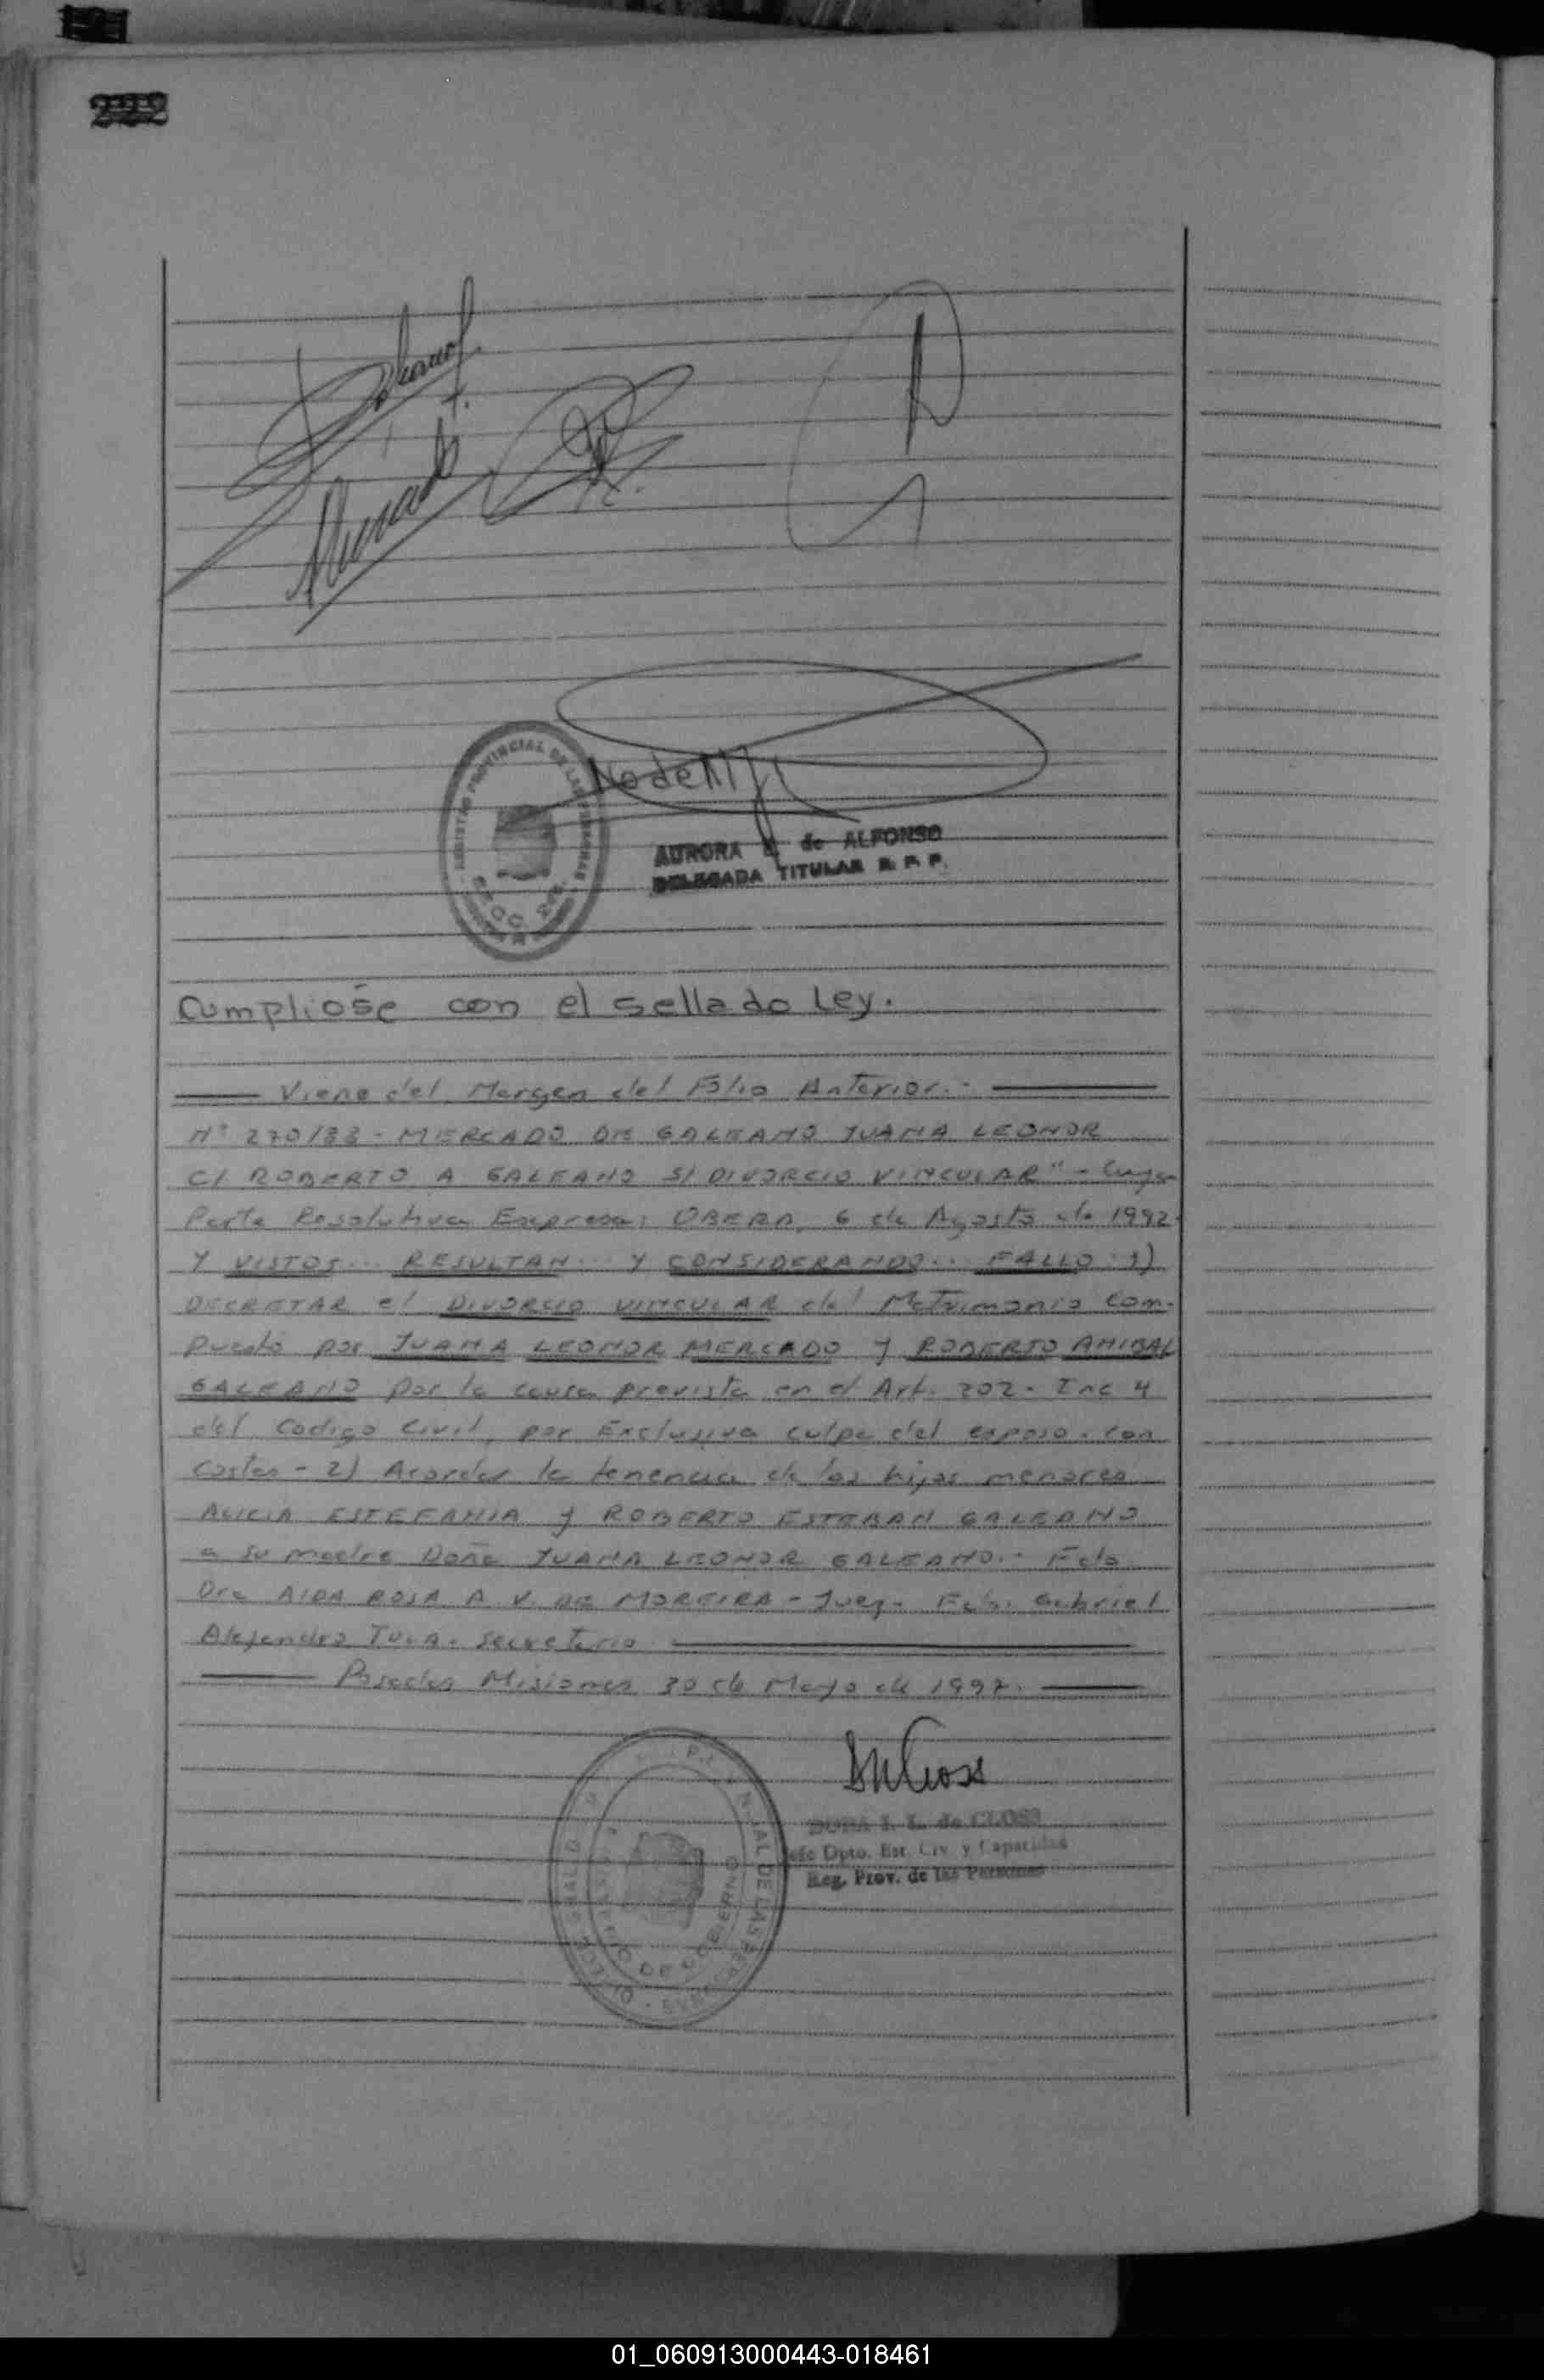 222
Mercado
Nodelli
REGISTRO PROVINCIAL DE LAS PERSONAS
AURORA de ALFONSO
DELEGADA TITULAR R. P. P.
Cumpliose con el sellado Ley.
Viene del Margen del Folio Anterior.-
N° 270/88 - MERCADO DE GALEANO JUANA LEONOR
C/ ROBERTO A GALEANO S/ DIVORCIO VINCULAR" - Cuya
Parte Resolutiva Expresa: OBERA, 6 de Agosto de 1992.
Y VISTOS... RESULTAN... Y CONSIDERANDO... FALLO: 1)
DECRETAR el DIVORCIO VINCULAR del Matrimonio Com-
puesto por JUANA LEONOR MERCADO y ROBERTO ANIBAL
GALEANO por la causa prevista en el Art. 202 - Inc 4
del Codigo Civil, por Exclusiva culpa del esposo. con
Costas - 2) Acordar la tenencia de los hijos menores
ALICIA ESTEFANIA y ROBERTO ESTEBAN GALEANO
a su madre Doña JUANA LEONOR GALEANO.- Fdo
Dra AIDA ROSA A. V. DE MOREIRA - Juez- Fdo. Gabriel
Alejandro - Secretario
Posadas Misiones 30 de Mayo de 1997.
DORA I. L. de CLOSS
Jefe Dpto. Est. Civ. y Capacidad
Reg. Prov. de las Personas
DE LAS PERSONAS
DE GOBIERNO
01_060913000443-018461